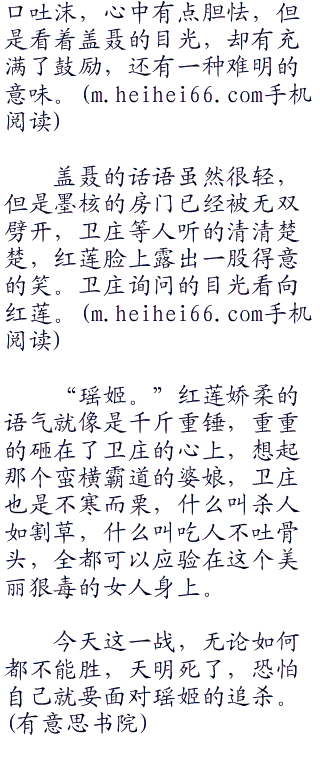 口吐沫，心中有点胆怯，但
是看着盖聂的目光，却有充
满了鼓励，还有一种难明的
意味。(m.heihei66.com手机
阅读)
盖聂的话语虽然很轻，
但是墨核的房门已经被无双
劈开，卫庄等人听的清清楚
楚，红莲脸上露出一股得意
的笑。卫庄询问的目光看向
红莲。(m.heihei66.com手机
阅读)
“瑶姬。”红莲娇柔的
语气就像是千斤重锤，重重
的砸在了卫庄的心上，想起
那个蛮横霸道的婆娘，卫庄
也是不寒而粟，什么叫杀人
如割草，什么叫吃人不吐骨
头，全都可以应验在这个美
丽狠毒的女人身上。
今天这一战，无论如何
都不能胜，天明死了，恐怕
自己就要面对瑶姬的追杀。
(有意思书院)